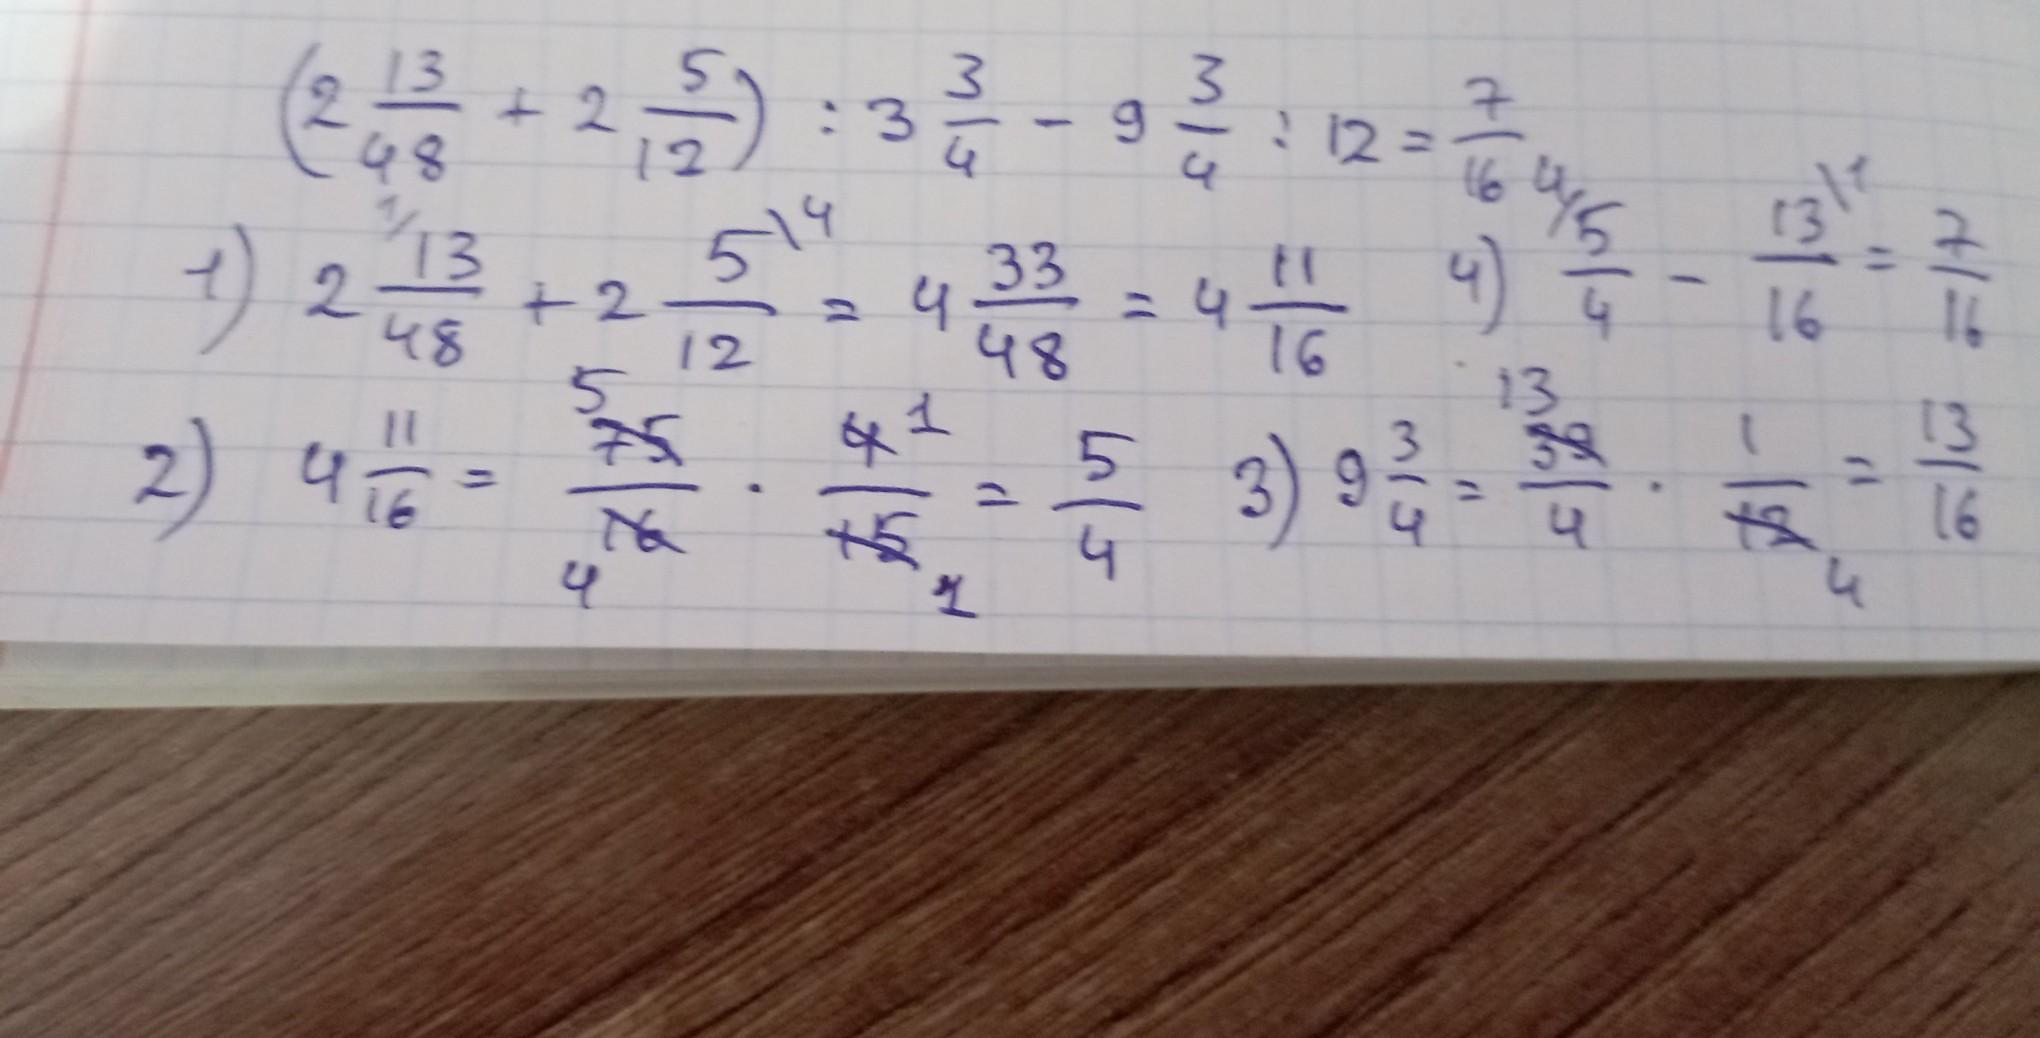 (2 13/48 + 2 5/12) : 3 3/4 - 9 3/4 : 12 = 7/16
1) 2 13/48 1/ + 2 5/12 \4 = 4 33/48 = 4 11/16
4) 4/ 5/4 - 13/16 \1 = 7/16
2) 4 11/16 = 5 75/16 4 · 4/15 1 1 = 5/4
3) 9 3/4 = 13 39/4 · 1/12 4 = 13/16